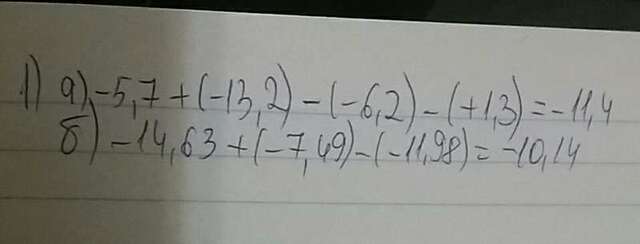 1) а) -5,7 + (-13,2) - (-6,2) - (+1,3) = -11,4
б) -14,63 + (-7,49) - (-11,98) = -10,14